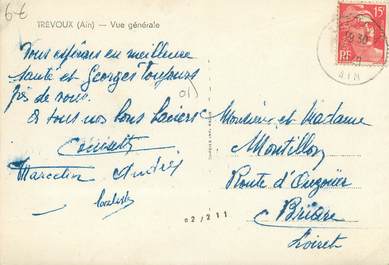 6€
TREVOUX (Ain) — Vue générale
Vous espérons en meilleure
santé et Georges Toujours
près de vous.
& tous nos bons baisers
01
Marcelin
Monsieur et Madame
Montillon
Route d'Ouzouer
Briare
Loiret
15f
RF
19 30
AIN
02/211